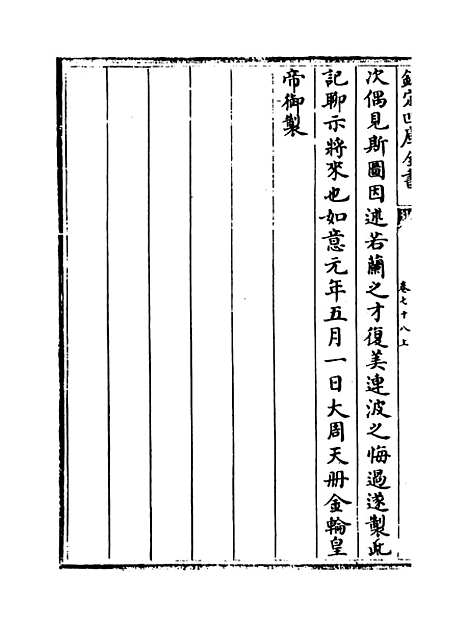 欽定四庫全書
卷七十八上
次偶見斯圖因述若蘭之才復美連波之悔過遂製此
記聊示將來也如意元年五月一日大周天冊金輪皇
帝御製